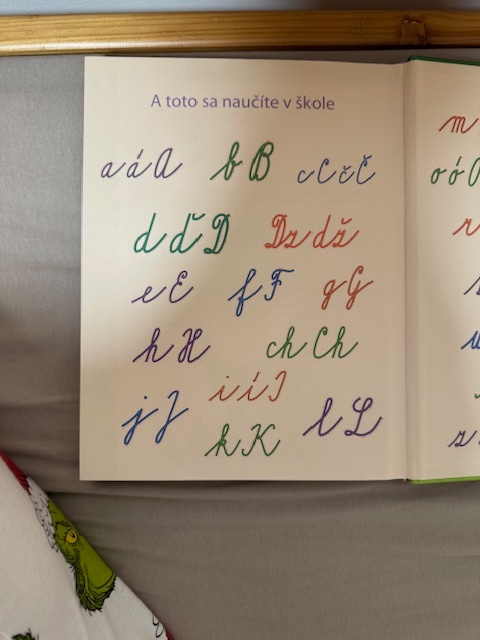 A toto sa naučíte v škole
a á A b B c C č Č
d ď D Dz dž
e E f F g G
h H ch Ch
i í I
j J l L
k K
m
o ó